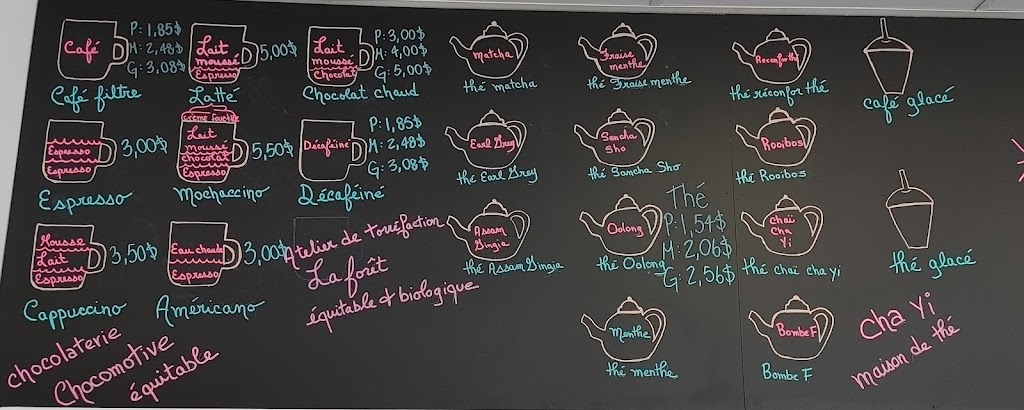 Café
P: 1,85$
M: 2,48$
G: 3,08$
Café filtre
Lait
moussé
Espresso
5,00$
Latté
Lait
moussé
Chocolat
P: 3,00$
M: 4,00$
G: 5,00$
Chocolat chaud
Matcha
thé matcha
Fraise
menthe
thé Fraise menthe
Reconforthé
thé réconfor thé
café glacé
Espresso
Espresso
3,00$
Espresso
Crème fouettée
Lait
moussé
chocolat
Espresso
5,50$
Mochaccino
Décaféiné
P: 1,85$
M: 2,48$
G: 3,08$
Décaféiné
Earl Grey
thé Earl Grey
Sancha
Sho
thé Sancha Sho
Rooibos
thé Rooibos
Mousse
Lait
Espresso
3,50$
Cappuccino
Eau chaude
Espresso
3,00$
Américano
Atelier de torréfaction
La forêt
équitable & biologique
Assam
Gingia
thé Assam Gingia
Oolong
thé Oolong
Thé
P: 1,54$
M: 2,06$
G: 2,56$
chaï
cha
yi
thé chaï cha yi
thé glacé
chocolaterie
Chocomotive
équitable
Menthe
thé menthe
Bombe F
Bombe F
cha Yi
maison de thé